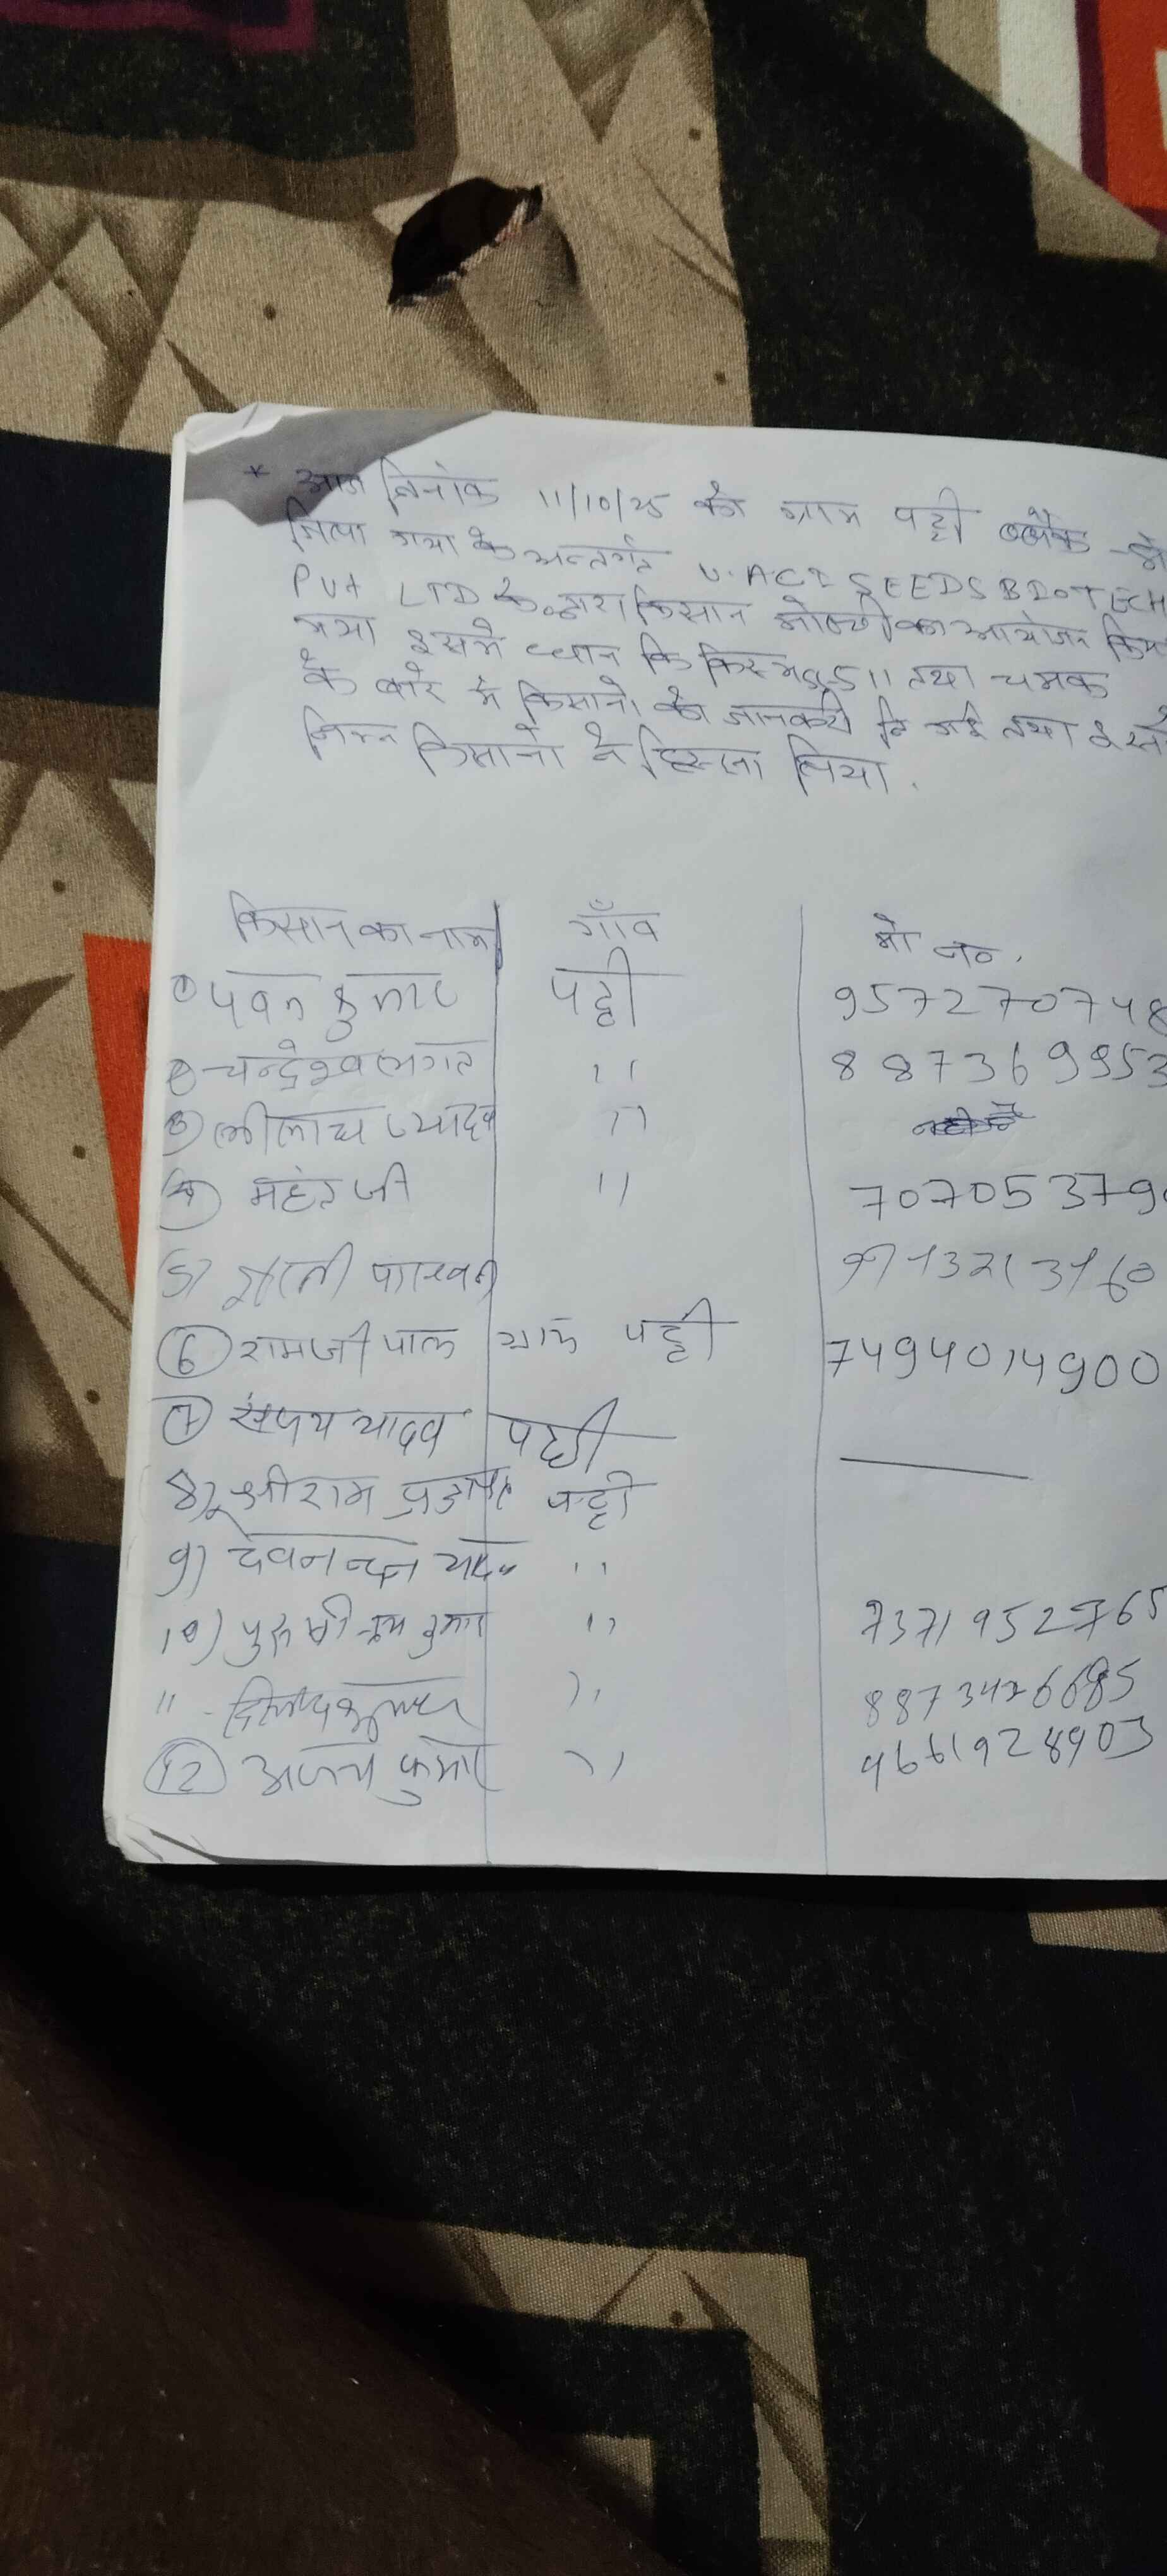 * आज दिनांक 11/10/25 को ग्राम पट्टी ब्लौक
जिला गया के अन्तर्गत U.ACT SEEDS BIOTECH
PVt LTD के द्वारा किसान गोष्ठी का आयोजन किया
गया इसमे ध्धान कि किस्म 511 तथा चमक
के बारे मे किसानो को जानकरी दि गई तथा इसमे
निम्न किसानो ने हिस्सा लिया.
किसान का नाम गाँव मो न०.
① पवन कुमार पट्टी 9572707748
② चन्द्रेश्वर भगत '' 8873699953
③ यादव ''
④ महंत जी '' 707053790
5) 9)
⑥ रामजी पाल ग्राम पट्टी 7494014900
⑦ संजय यादव पट्टी
8) श्री राम पट्टी
9) देवनन्दन यादव ''
10) कुमार '' 7371952765
11 '' 8873426685
⑫ अजय कुमार '' 9661928903